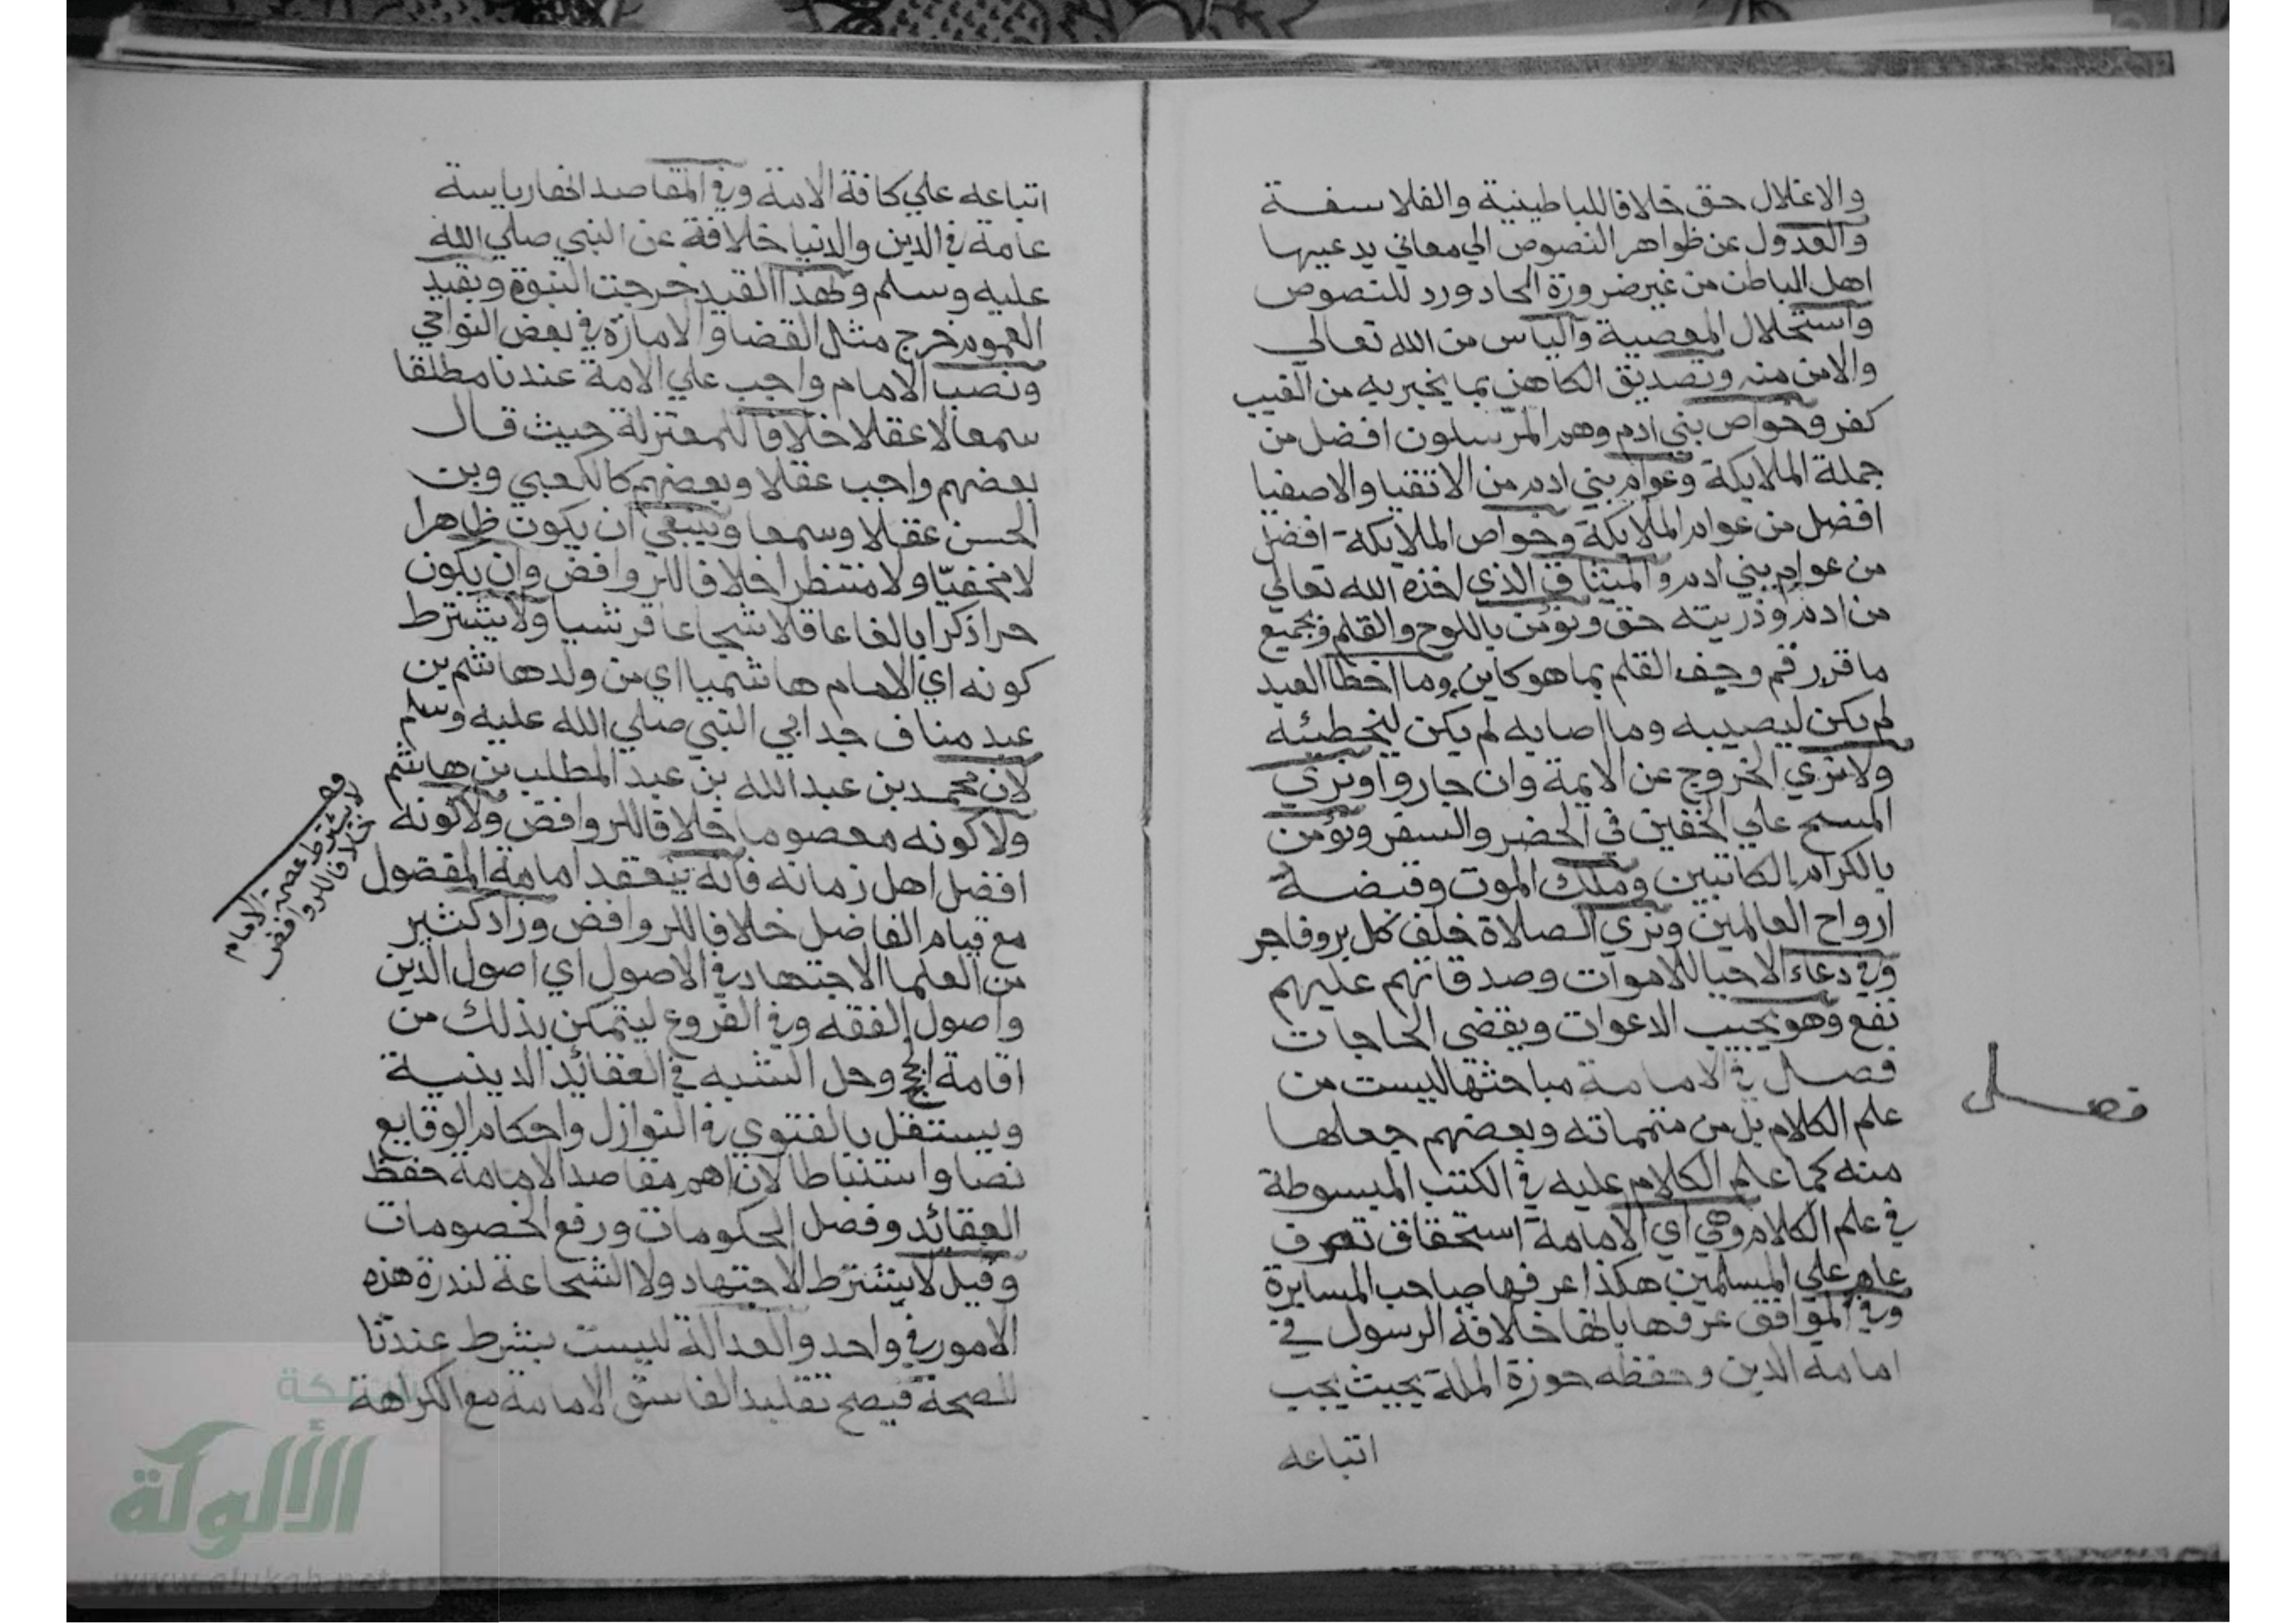 والاغلال حق خلافا للباطينية والفلاسفة
والعدول عن ظواهر النصوص الي معاني يدعيها
اهل الباطن من غير ضرورة الحاد ورد للنصوص
واستحلال المعصية والياس من الله تعالي
والامن منه وتصديق الكاهن بما يخبر به من الغيب
كفر وخواص بني ادم وهم المرسلون افضل من
جملة الملايكة وعوام بني ادم من الاتقيا والاصفيا
افضل من عوام الملايكة وخواص الملايكة افضل
من عوام بني ادم والميثاق الذي اخذه الله تعالي
من ادم وذريته حق ونؤمن باللوح والقلم وبجميع
ما قرر رقم وجف القلم بما هو كاين وما اخطا العبد
لم يكن ليصيبه وما اصابه لم يكن ليخطيئه
ولا نري الخروج عن الايمة وان جاروا ونري
المسح علي الخفين في الحضر والسفر ونؤمن
بالكرام الكاتبين وملك الموت وقبضة
ارواح العالمين ونري الصلاة خلف كل بر وفاجر
وفي دعاء الاحيا للاموات وصدقاتهم عليهم
نفع وهو يجيب الدعوات ويقضي الحاجات
فصل في الامامة مباحثها ليست من
علم الكلام بل من متمماته وبعضهم جعلها
منه كما علم الكلام عليه في الكتب المبسوطة
في علم الكلام وهي اي الامامة استحقاق تصرف
عام علي المسلمين هكذا عرفها صاحب المسايرة
وفي المواقف عرفها بانها خلافة الرسول في
امامة الدين وحفظه حوزة الملة بحيث يجب
اتباعه
فصل
اتباعه علي كافة الامة وفي المقاصد انها رياسة
عامة في الدين والدنيا خلافة عن النبي صلي الله
عليه وسلم وبهذا القيد خرجت النبوة وبقيد
العموم خرج مثل القضا والامارة في بعض النواحي
ونصب الامام واجب علي الامة عندنا مطلقا
سمعا لا عقلا خلافا للمعتزلة حيث قال
بعضهم واجب عقلا وبعضهم كالكعبي وبن
الحسن عقلا وسمعا وينبغي ان يكون ظاهرا
لا مخفيّا ولا منتظرا خلافا للروافض وان يكون
حرا ذكرا بالغا عاقلا شجاعا قرشيا ولا يشترط
كونه اي الامام هاشميا اي من ولد هاشم بن
عبد مناف جد ابي النبي صلي الله عليه وسلم
لان محمد بن عبد الله بن عبد المطلب بن هاشم
ولا كونه معصوما خلافا للروافض ولا كونه
افضل اهل زمانه فانه ينعقد امامة المفضول
مع قيام الفاضل خلافا للروافض وزاد كثير
من العلما الاجتهاد في الاصول اي اصول الدين
واصول الفقه وفي الفروع ليتمكن بذلك من
اقامة الحج وحل الشبه في العقائد الدينية
ويستقل بالفتوي في النوازل واحكام الوقايع
نصا واستنباطا لان اهم مقاصد الامامة حفظ
العقائد وفصل الحكومات ورفع الخصومات
وقيل لا يشترط الاجتهاد ولا الشجاعة لندرة هذه
الامور في واحد والعدالة ليست بشرط عندنا
للصحة فيصح تقليد الفاسق الامامة مع الكراهة
لا يشترط عصمة الامام
خلافا للروافض
شبكة
الألوكة
www.alukah.net